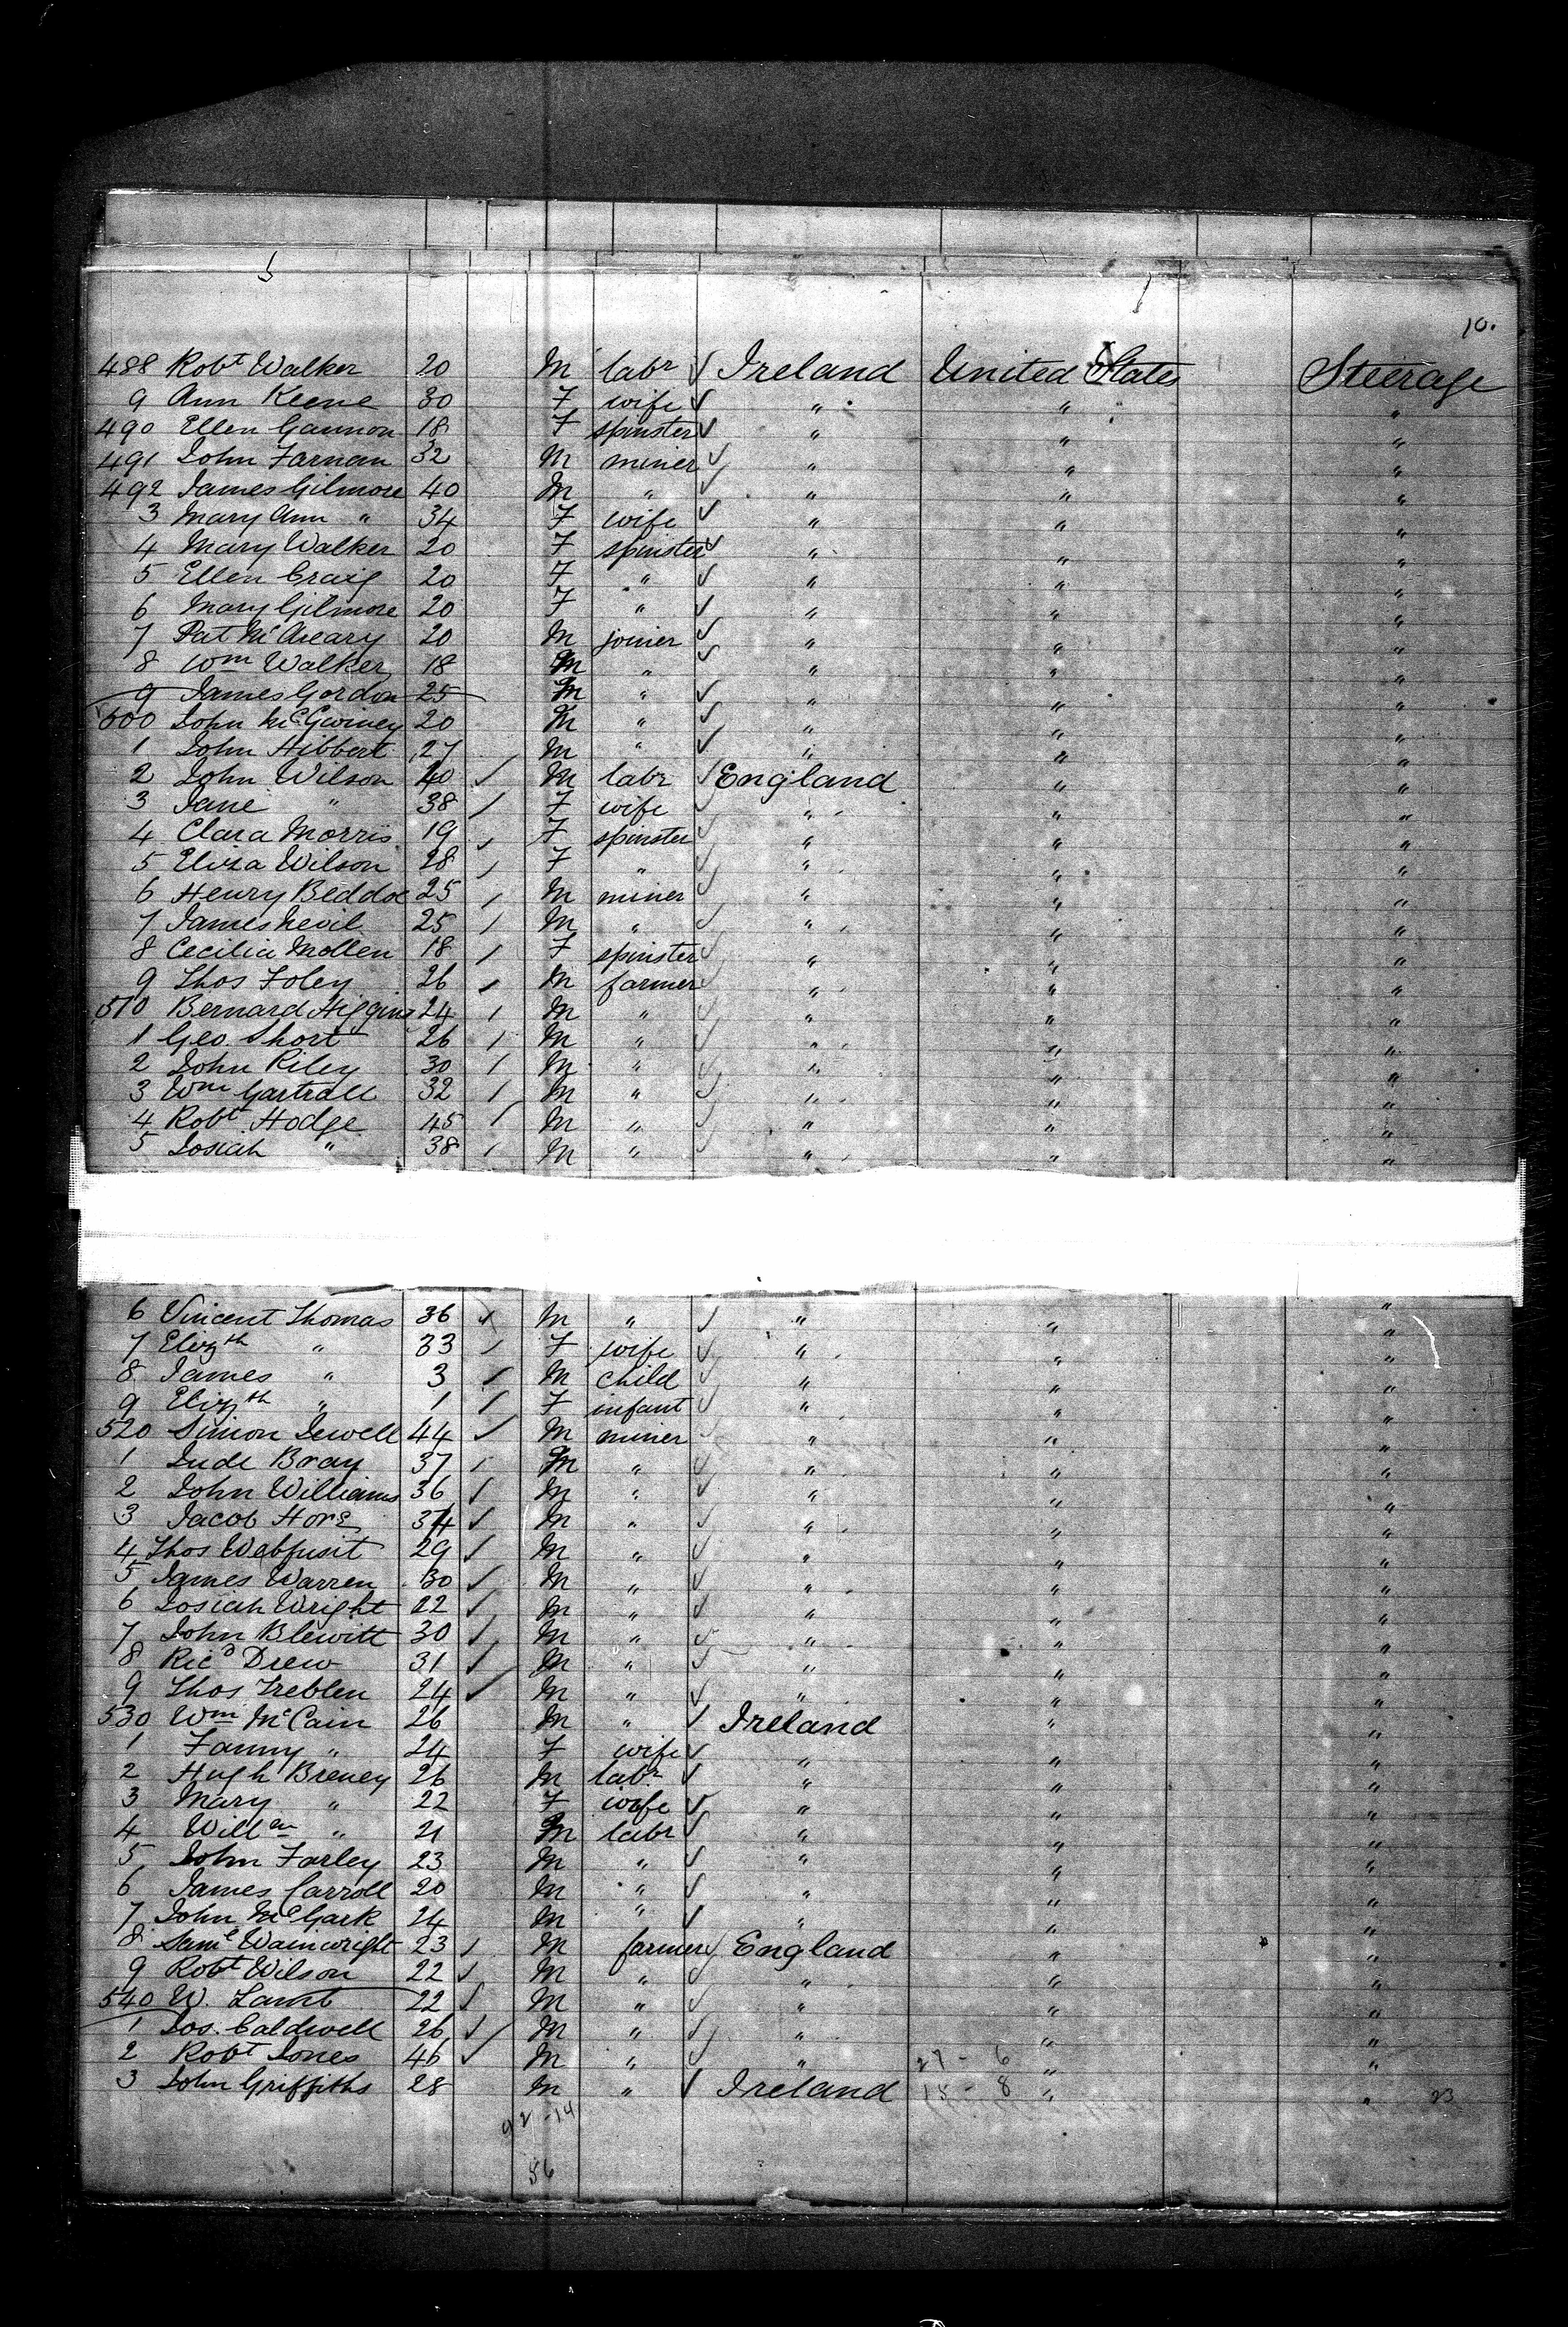 10.
488 Robt Walker 20 M labr ✓ Ireland United States Steerage
9 Ann Keene 30 F wife ✓ " " "
490 Ellen Gannon 18 F spinster ✓ " " "
491 John Farnan 32 M miner ✓ " " "
492 James Gilmore 40 M " ✓ " " "
3 Mary Ann " 34 F wife ✓ " " "
4 Mary Walker 20 F spinster ✓ " " "
5 Ellen Craig 20 F " ✓ " " "
6 Mary Gilmore 20 F " ✓ " " "
7 Pat McAreary 20 M joiner ✓ " " "
8 Wm Walker 18 M " ✓ " " "
9 James Gordon 25 M " ✓ " " "
500 John McGurney 20 M " ✓ " " "
1 John Hibbert 27 M " ✓ " " "
2 John Wilson 40 ✓ M labr ✓ England " "
3 Jane " 38 / F wife ✓ " " "
4 Clara Morris 19 ✓ F spinster ✓ " " "
5 Eliza Wilson 28 / F " ✓ " " "
6 Henry Beddoe 25 / M miner ✓ " " "
7 James Nevil 25 / M " ✓ " " "
8 Cecilia Mollen 18 / F spinster ✓ " " "
9 Thos Foley 26 / M farmer ✓ " " "
510 Bernard Higgins 24 / M " ✓ " " "
1 Geo. Short 26 / M " ✓ " " "
2 John Riley 30 / M " ✓ " " "
3 Wm Gartrall 32 / M " ✓ " " "
4 Robt Hodge 45 / M " ✓ " " "
5 Josiah " 38 / M " ✓ " " "
6 Vincent Thomas 36 ✓ M " ✓ " " "
7 Elizth " 33 / F wife ✓ " " "
8 James " 3 / M child ✓ " " "
9 Elizth " 1 / F infant ✓ " " "
520 Simon Jewell 44 ✓ M miner ✓ " " "
1 Jude Bray 37 / M " ✓ " " "
2 John Williams 36 ✓ M " ✓ " " "
3 Jacob Hore 34 ✓ M " ✓ " " "
4 Thos 29 ✓ M " ✓ " " "
5 James Warren 30 ✓ M " ✓ " " "
6 Josiah Wright 22 ✓ M " ✓ " " "
7 John Blewitt 30 ✓ M " ✓ " " "
8 Ricd Drew 31 ✓ M " ✓ " " "
9 Thos Treblen 24 ✓ M " ✓ " " "
530 Wm McCain 26 M " ✓ Ireland " "
1 Fanny " 24 F wife ✓ " " "
2 Hugh Breney 26 M labr ✓ " " "
3 Mary " 22 F wife ✓ " " "
4 Willm " 21 M labr ✓ " " "
5 John Farley 23 M " ✓ " " "
6 James Carroll 20 M " ✓ " " "
7 John McGark 24 M " ✓ " " "
8 Saml Wainwright 23 / M farmer ✓ England " "
9 Robt Wilson 22 ✓ M " ✓ " " "
540 W. Lamb 22 ✓ M " ✓ " " "
1 Jos. Caldwell 26 ✓ M " ✓ " " "
2 Robt Jones 46 ✓ M " ✓ " 27 - 6 " "
3 John Griffiths 28 M " ✓ Ireland 15 - 8 " " 23
42 - 14
56